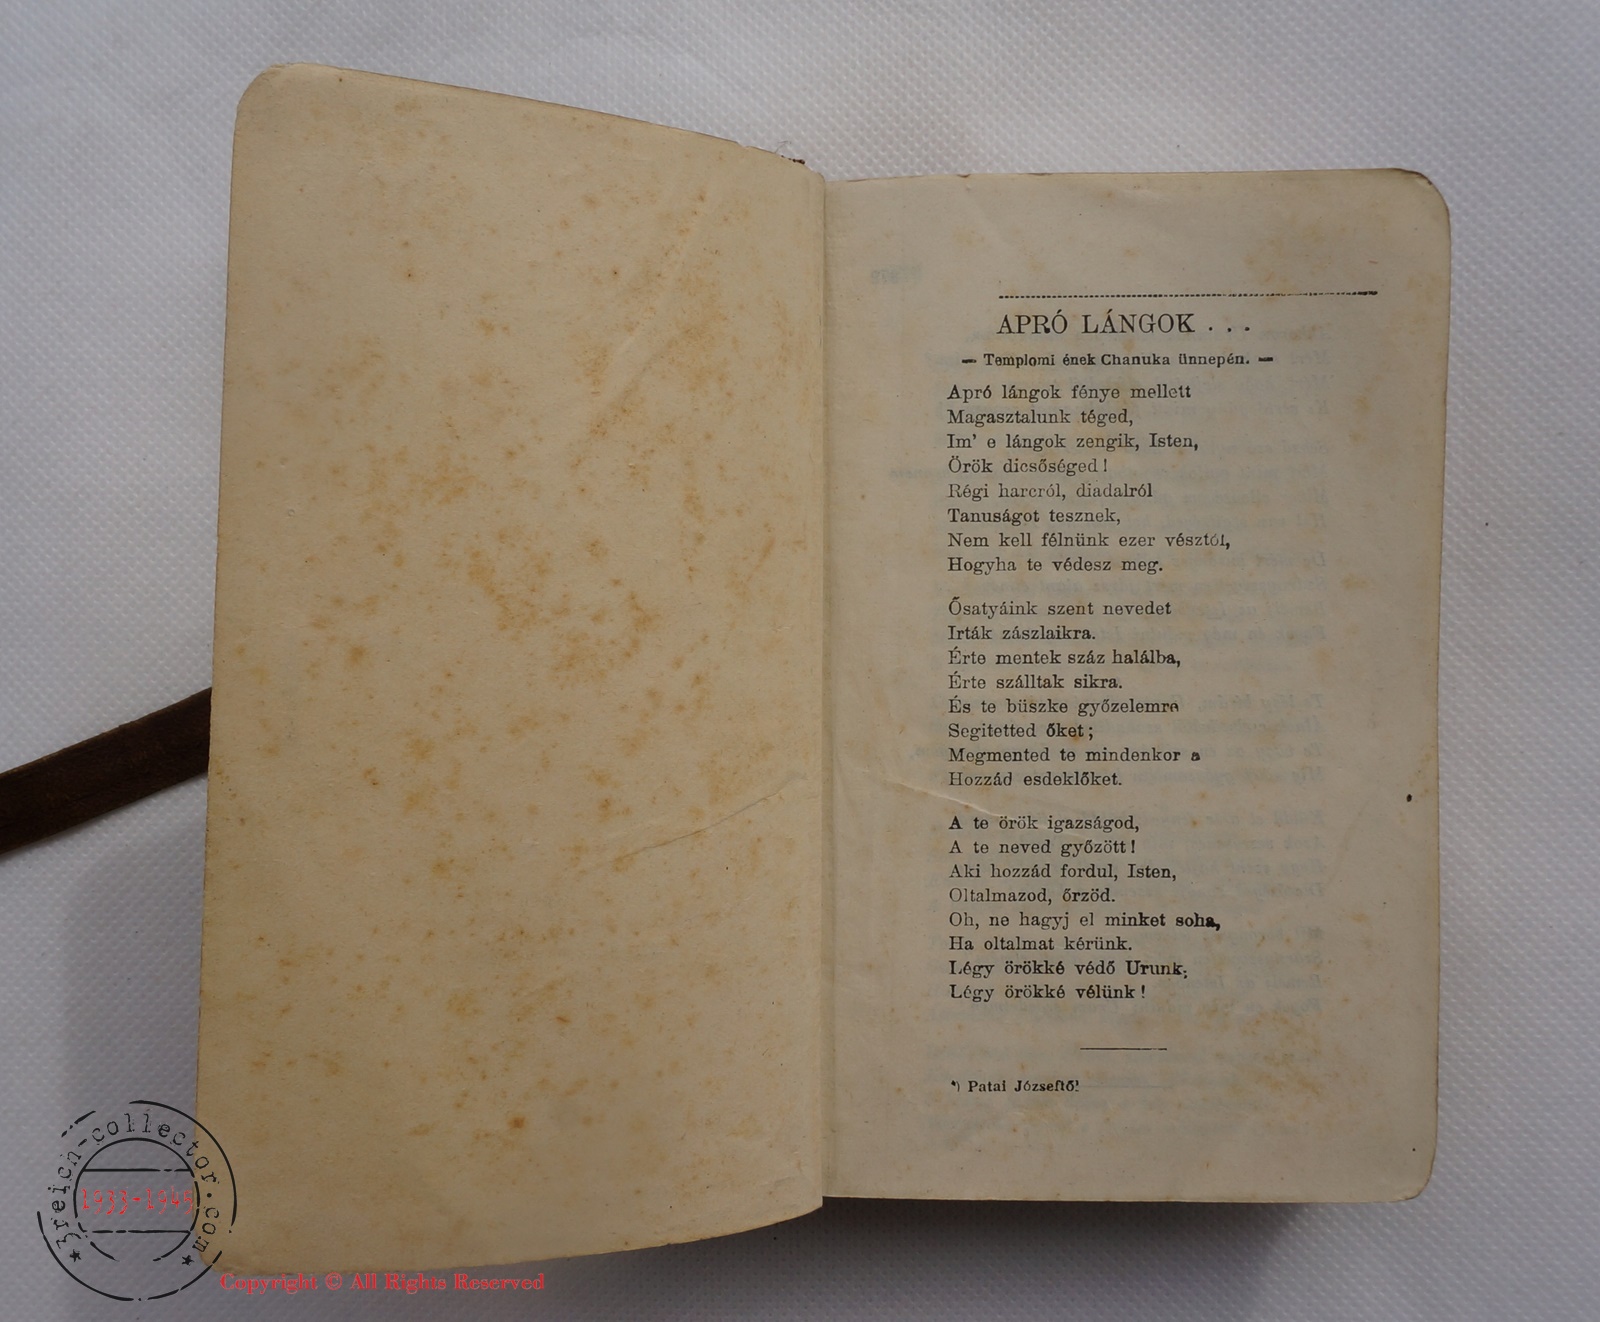 APRÓ LÁNGOK . . .
— Templomi ének Chanuka ünnepén. —
Apró lángok fénye mellett
Magasztalunk téged,
Im' e lángok zengik, Isten,
Örök dicsőséged!
Régi harcról, diadalról
Tanuságot tesznek,
Nem kell félnünk ezer vésztől,
Hogyha te védesz meg.
Ősatyáink szent nevedet
Irták zászlaikra.
Érte mentek száz halálba,
Érte szálltak sikra.
És te büszke győzelemre
Segitetted őket;
Megmented te mindenkor a
Hozzád esdeklőket.
A te örök igazságod,
A te neved győzött!
Aki hozzád fordul, Isten,
Oltalmazod, őrzöd.
Oh, ne hagyj el minket soha,
Ha oltalmat kérünk.
Légy örökké védő Urunk;
Légy örökké vélünk!
*) Patai Józseftől
3reich-collector.com
1933-1945
Copyright © All Rights Reserved